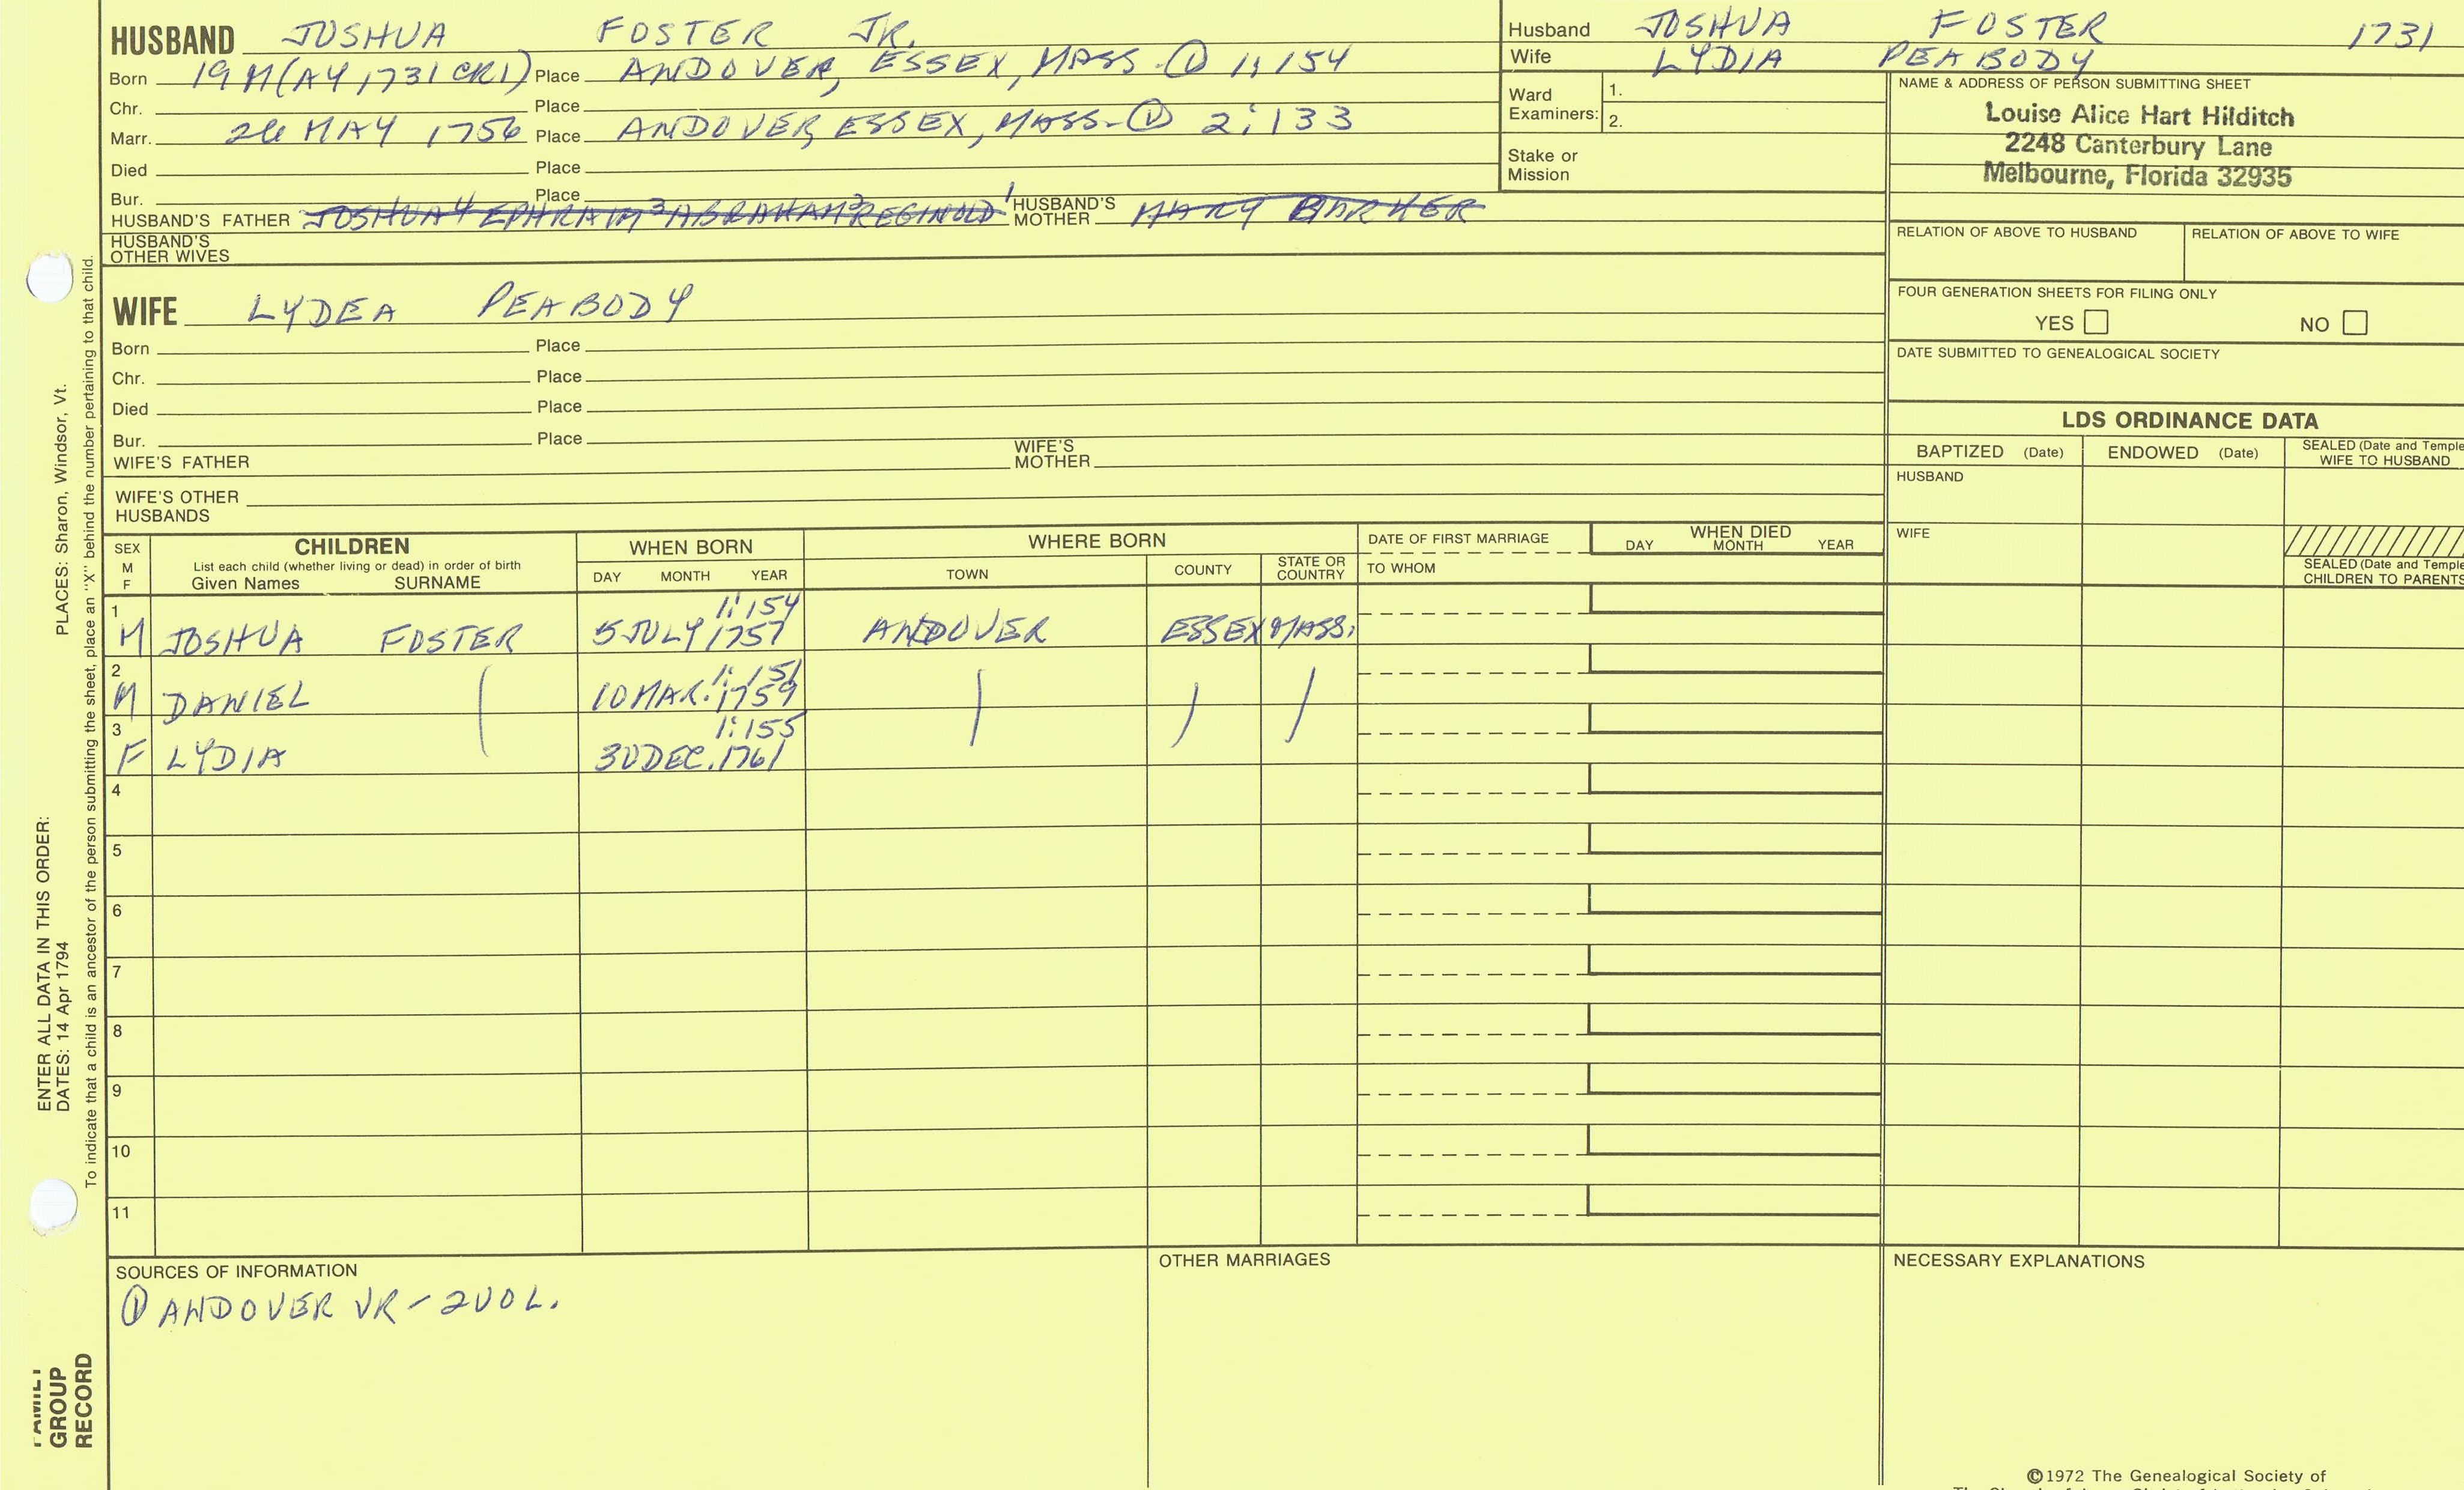 HUSBAND JOSHUA FOSTER JR.
Born 19 M(AY, 1731 CR1) Place ANDOVER, ESSEX, MASS. ① 1:154
Chr. Place
Marr. MAY 1756 Place ANDOVER, ESSEX, MASS. ① 2:133
Died Place
Bur. Place
HUSBAND'S FATHER JOSHUA 4 EPHRAIM 3 ABRAHAM REGINOLD 1 HUSBAND'S MOTHER MARY BARKER
HUSBAND'S OTHER WIVES
Husband JOSHUA FOSTER 1731
Wife LYDIA PEABODY
Ward Examiners: 1.
2.
Stake or Mission
NAME & ADDRESS OF PERSON SUBMITTING SHEET
Louise Alice Hart Hilditch
2248 Canterbury Lane
Melbourne, Florida 32935
RELATION OF ABOVE TO HUSBAND RELATION OF ABOVE TO WIFE
FOUR GENERATION SHEETS FOR FILING ONLY
YES NO
DATE SUBMITTED TO GENEALOGICAL SOCIETY
WIFE LYDEA PEABODY
Born Place
Chr. Place
Died Place
Bur. Place
WIFE'S FATHER WIFE'S MOTHER
WIFE'S OTHER HUSBANDS
LDS ORDINANCE DATA
BAPTIZED (Date) ENDOWED (Date) SEALED (Date and Temple
WIFE TO HUSBAND
HUSBAND
WIFE
SEALED (Date and Temple
CHILDREN TO PARENTS
SEX M F CHILDREN WHEN BORN WHERE BORN DATE OF FIRST MARRIAGE WHEN DIED
List each child (whether living or dead) in order of birth
Given Names SURNAME DAY MONTH YEAR TOWN COUNTY STATE OR COUNTRY TO WHOM DAY MONTH YEAR
1 1:154
M JOSHUA FOSTER 5 JULY 1757 ANDOVER ESSEX MASS.
2 1:151
M DANIEL 10 MAR. 1759
3 1:155
F LYDIA 30 DEC. 1761
4
5
6
7
8
9
10
11
SOURCES OF INFORMATION
① ANDOVER VR - 2 VOL.
OTHER MARRIAGES
NECESSARY EXPLANATIONS
©1972 The Genealogical Society of
PLACES: Sharon, Windsor, Vt.
To indicate that a child is an ancestor of the person submitting the sheet, place an "X" behind the number pertaining to that child.
ENTER ALL DATA IN THIS ORDER:
DATES: 14 Apr 1794
FAMILY
GROUP
RECORD